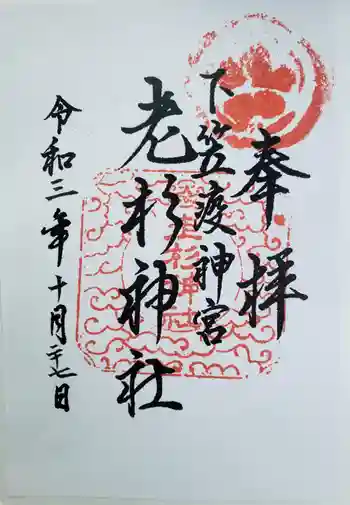 奉拝
下笠疫神宮
老杉神社
令和三年十月二十七日
老杉神社